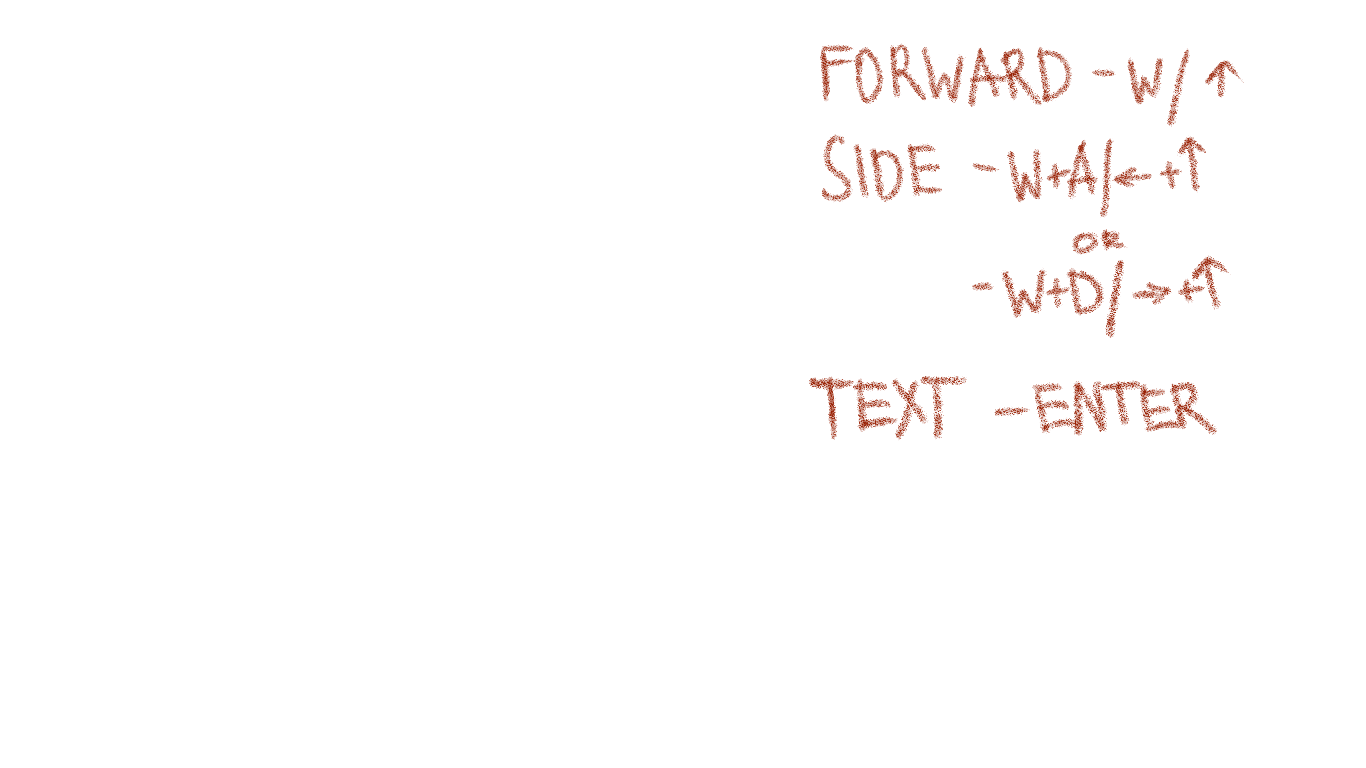 FORWARD - W/↑
SIDE - W+A/←+↑
OR
- W+D/→+↑
TEXT - ENTER